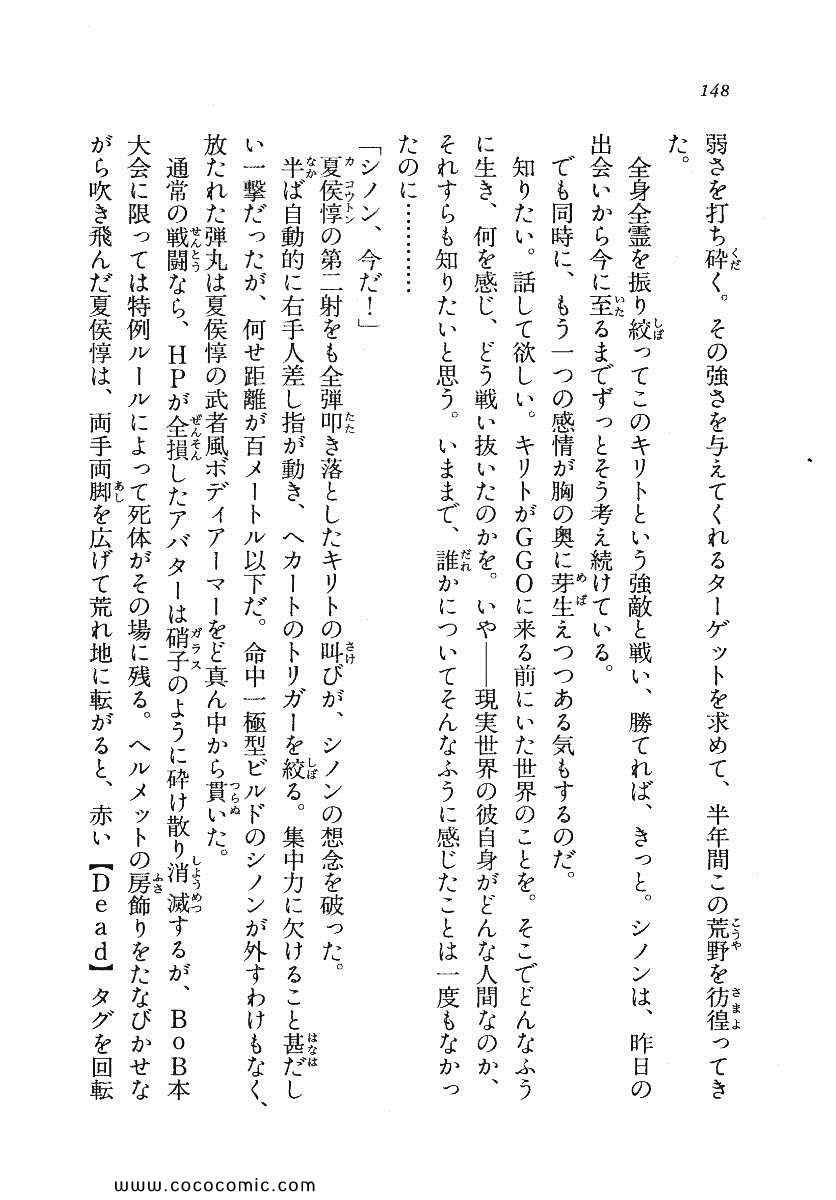 148
弱さを打ち砕く。その強さを与えてくれるターゲットを求めて、半年間この荒野を彷徨ってき
た。
　全身全霊を振り絞ってこのキリトという強敵と戦い、勝てれば、きっと。シノンは、昨日の
出会いから今に至るまでずっとそう考え続けている。
　でも同時に、もう一つの感情が胸の奥に芽生えつつある気もするのだ。
　知りたい。話して欲しい。キリトがGGOに来る前にいた世界のことを。そこでどんなふう
に生き、何を感じ、どう戦い抜いたのかを。いや──現実世界の彼自身がどんな人間なのか、
それすらも知りたいと思う。いままで、誰かについてそんなふうに感じたことは一度もなかっ
たのに…………
「シノン、今だ！」
　夏侯惇の第二射をも全弾叩き落としたキリトの叫びが、シノンの想念を破った。
　半ば自動的に右手人差し指が動き、ヘカートのトリガーを絞る。集中力に欠けること甚だし
い一撃だったが、何せ距離が百メートル以下だ。命中一極型ビルドのシノンが外すわけもなく、
放たれた弾丸は夏侯惇の武者風ボディアーマーをど真ん中から貫いた。
　通常の戦闘なら、HPが全損したアバターは硝子のように砕け散り消滅するが、BoB本
大会に限っては特例ルールによって死体がその場に残る。ヘルメットの房飾りをたなびかせな
がら吹き飛んだ夏侯惇は、両手両脚を広げて荒れ地に転がると、赤い【Dead】タグを回転
www.cococomic.com/